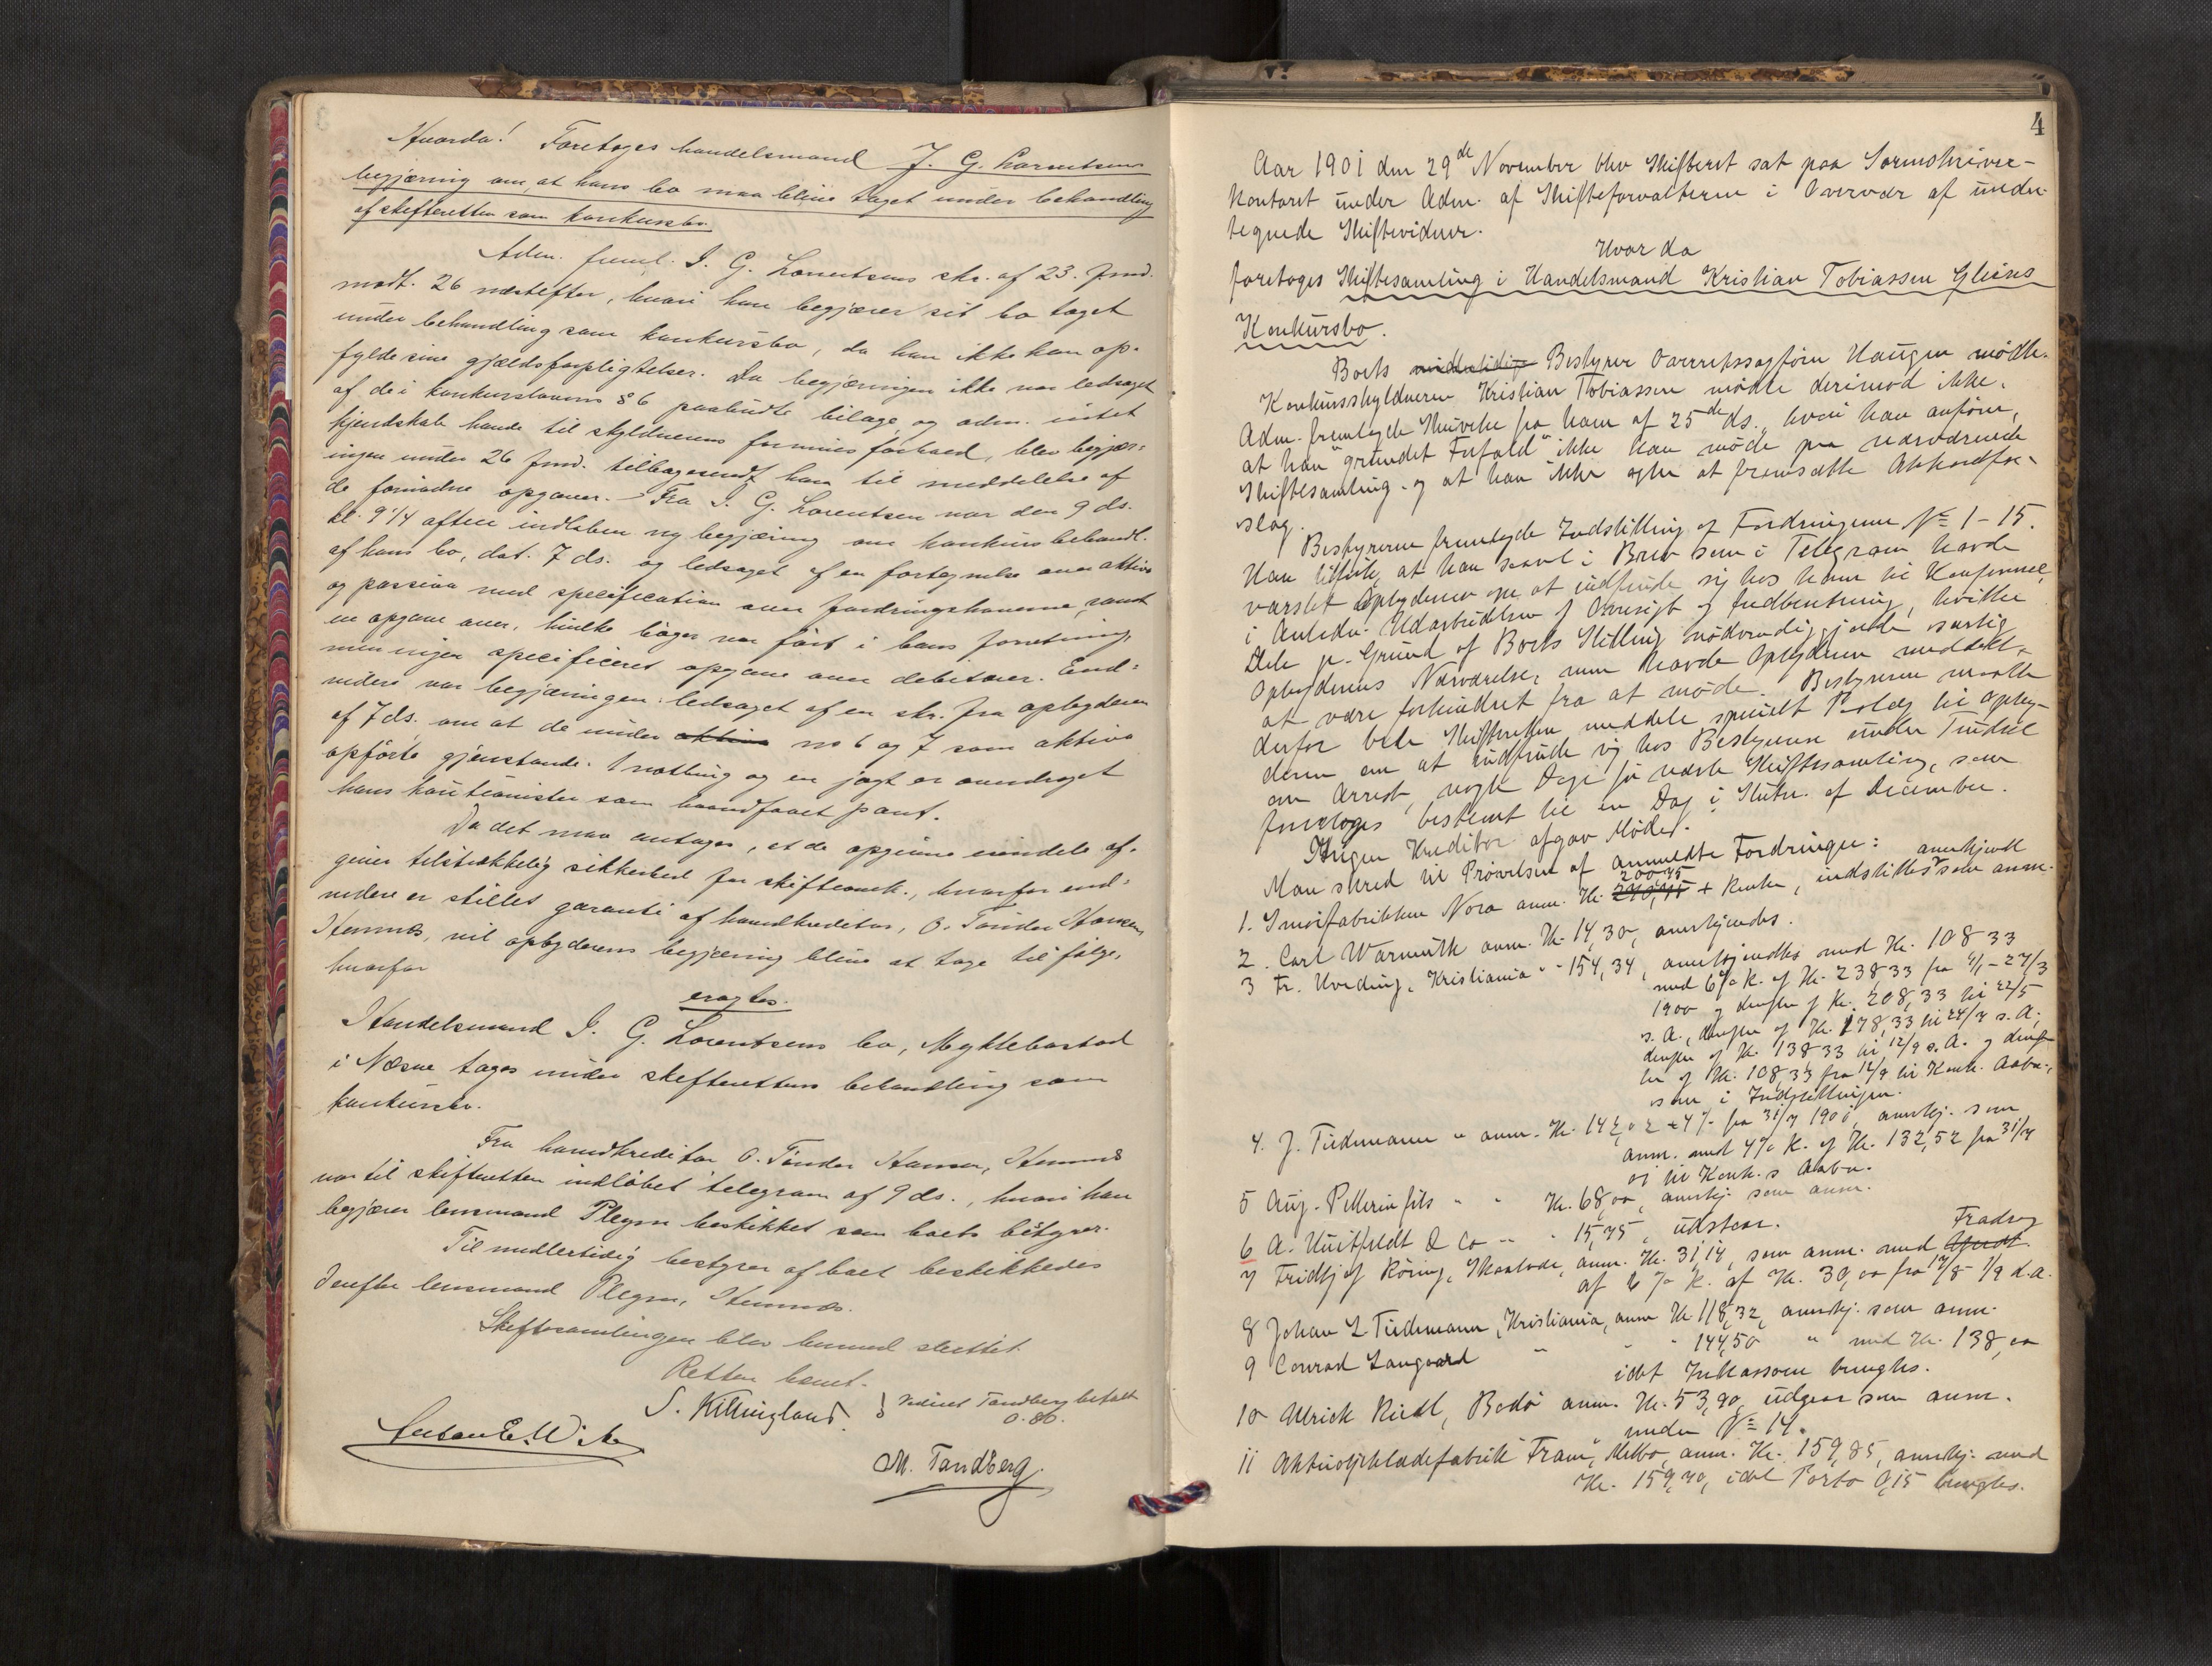 Hvorda! Foretoges handelsmand J. G. Lorentsens
begjæring om, at hans bo maa blive taget under behandling
af skifteretten som konkursbo.
Adm. freml. J. G. Lorentsens skr. af 23. f.md.
modt. 26 næstefter, hvori han begjærer sit bo taget
under behandling som konkursbo, da han ikke kan op-
fylde sine gjældsforpligtelser. Da begjæringen ikke var ledsaget
af de i konkurslovens § 6 paabudte bilage, og adm. intet
kjendskab havde til skyldnerens formuesforhold, blev begjær-
ingen under 26 f.md. tilbagesendt ham til meddelelse af
de fornødne opgaver. - Fra J. G. Lorentsen var den 9 ds.
kl. 9 1/4 aften indløben ny begjæring om konkursbehandl.
af hans bo, dat. 7 ds. og ledsaget af en fortegnelse over aktiva
og passiva med specification over fordringshaverne, samt
en opgave over, hvilke bøger var ført i hans forretning,
men ingen specificeret opgave over debitorer. End-
videre var begjæringen ledsaget af en skr. fra opbyderen
af 7 ds. om at de under aktiva no 6 og 7 som aktiva
opførte gjenstande: 1 notbrug og en jagt er overdraget
hans kautionister som haandfaaet pant.
Da det maa antages, at de opgivne eiendele af-
giver tilstrækkelig sikkerhed for skifteomk., hvorfor end-
videre er stillet garanti af hovedkreditor, O. Tønder Hansen,
Hemnes, vil opbyderens begjæring blive at tage til følge,
hvorfor
eragtes.
Handelsmand J. G. Lorentsens bo, Myklebostad
i Næsne tages under skifterettens behandling som
konkursbo.
Fra hovedkreditor O. Tønder Hansen, Hemnes
var til skifteretten indløbet telegram af 9 ds., hvori han
begjærer lensmand Plegm beskikket som boets bestyrer.
Til midlertidig bestyrer af boet beskikkedes
derefter lensmand Plegm, Hemnæs.
Skiftesamlingen blev hermed sluttet.
Retten hævet.
S. Killingland. Vidnet Tandberg betalt
0.80.
M. Tandberg.
4
Aar 1901 den 29de November blev Skifteret sat paa Sorenskriver-
kontoret under Adm. af Skifteforvalteren i Overvær af under-
tegnede Skiftevidner.
Hvor da
foretoges Skiftesamling i Handelsmand Kristian Tobiassen Gleines
Konkursbo.
Boets midlertidige Bestyrer Overretssagfører Haugen mødte.
Konkursskyldneren Kristian Tobiassen mødte derimod ikke.
Adm. fremlagde Skrivelse fra ham af 25de ds., hvori han anfører,
at han "grundet Forfald" ikke kan møde paa nærværende
Skiftesamling og at han ikke agter at fremsætte Akkordfor-
slag.
Bestyreren fremlagde Indstilling af Fordringerne No 1-15.
Han tilføiede, at han saavel i Brev som i Telegram havde
varslet Opbyderen om at indfinde sig hos ham til Konference
i Anledn. Udarbeidelsen af Oversigt og Indberetning, hvilke
Dele p. Grund af Boets Stilling nødvendiggjorde særlig
Opbyderens Nærværelse, men havde Opbyderen meddelt
at være forhindret fra at møde. Bestyreren maatte
derfor bede Skifteretten meddele specielt Paalæg til Opby-
deren om at indfinde sig hos Bestyreren under Trudsel
om Arrest, nogle Dage før næste Skiftesamling, som
foresloges bestemt til en Dag i Slutn. af December.
Ingen Kreditor afgav Møde.
Man skred til Prøvelsen af anmeldte Fordringer:
1. Smørfabrikken Nora anm. Kr. 210,45 200,45 + Renter, indstilles anerkjendt som anm.
2. Carl Warmuth anm. Kr. 14,30, anerkjendes.
3 Fr. Hveding, Kristiania " " 154,34, anerkjendtes med Kr. 108 33
med 6% R. af Kr. 238,33 fra 4/1 - 27/3
1900 og derefter af Kr. 208,33 til 22/5
s. A., derefter af Kr. 178,33 til 24/7 s. A.,
derefter af Kr. 138 33 til 12/9 s. A. og deref-
ter af Kr. 108,33 fra 12/9 til Konk. Aabn.,
som i Indstillingen.
4. J. Tiedemann " anm. Kr. 142,02 + 4% fra 31/7 1901, anerkj. som
anm. med 4% R. af Kr. 132,52 fra 31/7
01 til Konk.s Aabn.
5 Aug. Pellerin fils " " Kr. 68,00, anerkj. som anm.
6 A. Huitfeldt & Co " " 15,75, udstaar.
7 Fridtjof Röring, Skaalvær, anm. Kr. 31,14, som anm. med Fradrag
af 6% R. af Kr. 30,00 fra 17/8 - 1/9 d.A.
8 Johan L Tiedemann, Kristiania, anm Kr 118,32, anerkj. som anm.
9 Conrad Langaard " " " 144,50 " med Kr. 138,00
idet Inkassoen benegtes.
10 Ulrick Riedl, Bodø anm. Kr. 53,90, udgaar som anm.
under No 14.
11 Aktieoljeklædefabrik "Fram", Melbo, anm. Kr. 159,85, anerkj. med
Kr. 159,70, idet Porto 0,15 benegtes.